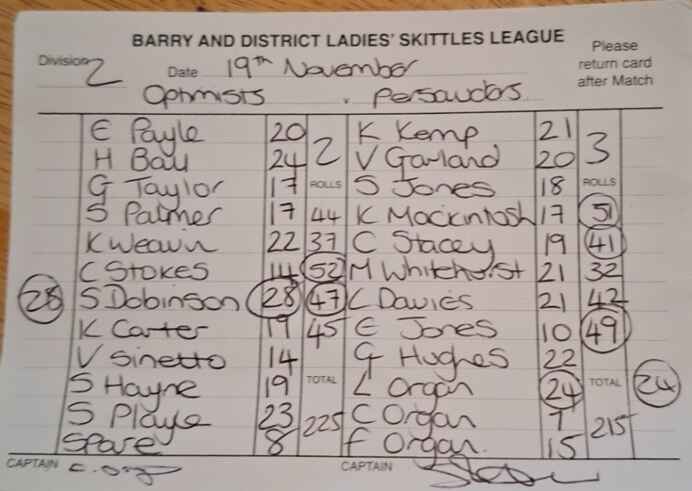 BARRY AND DISTRICT LADIES' SKITTLES LEAGUE
Please return card after Match
Division 2 Date 19th November
Optimists . Persauders
E Payle 20 2 K Kemp 21 3
H Bau 24 V Garland 20
G Taylor 17 ROLLS S Jones 18 ROLLS
S Palmer 17 44 K Mackintosh 17 51
K Weavin 22 37 C Stacey 19 41
C Stokes 14 52 M Whitehorst 21 32
28 S Dobinson 28 47 L Davies 21 42
K Carter 19 45 E Jones 10 49
V Sinetto 14 G Hughes 22
S Hayne 19 TOTAL L Organ 24 TOTAL 24
S Playe 23 225 C Organ 7 215
Spare 8 F Organ. 15
CAPTAIN CAPTAIN